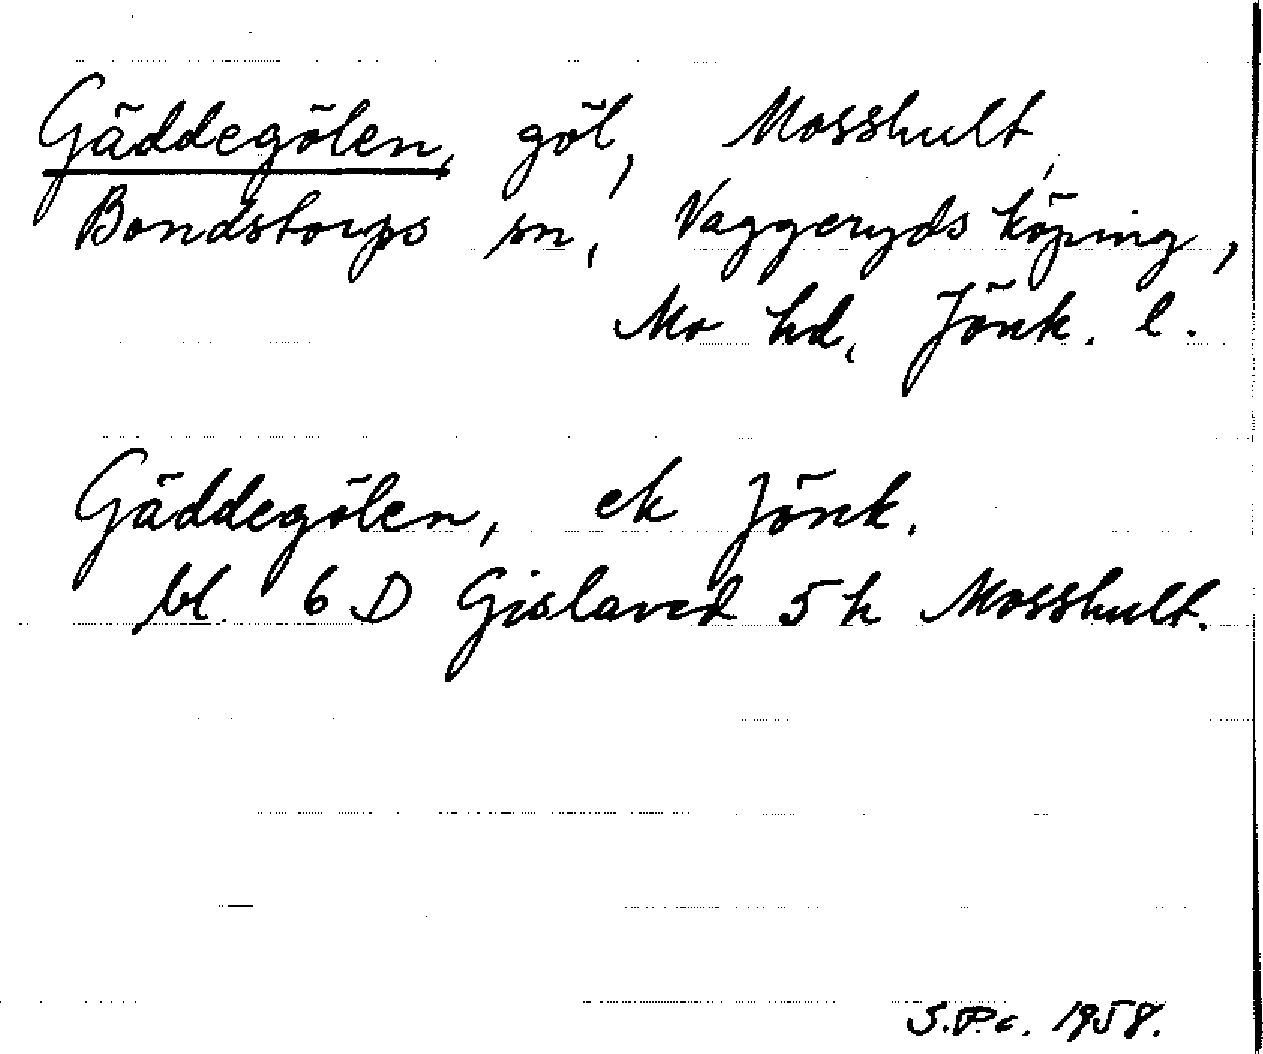 Gäddegölen, göl, Mosshult,
Bondstorps sn, Vaggeryds köping,
Mo hd, Jönk. l.
Gäddegölen, ek Jönk.
bl. 6 D Gislaved 5 h Mosshult.
1958.